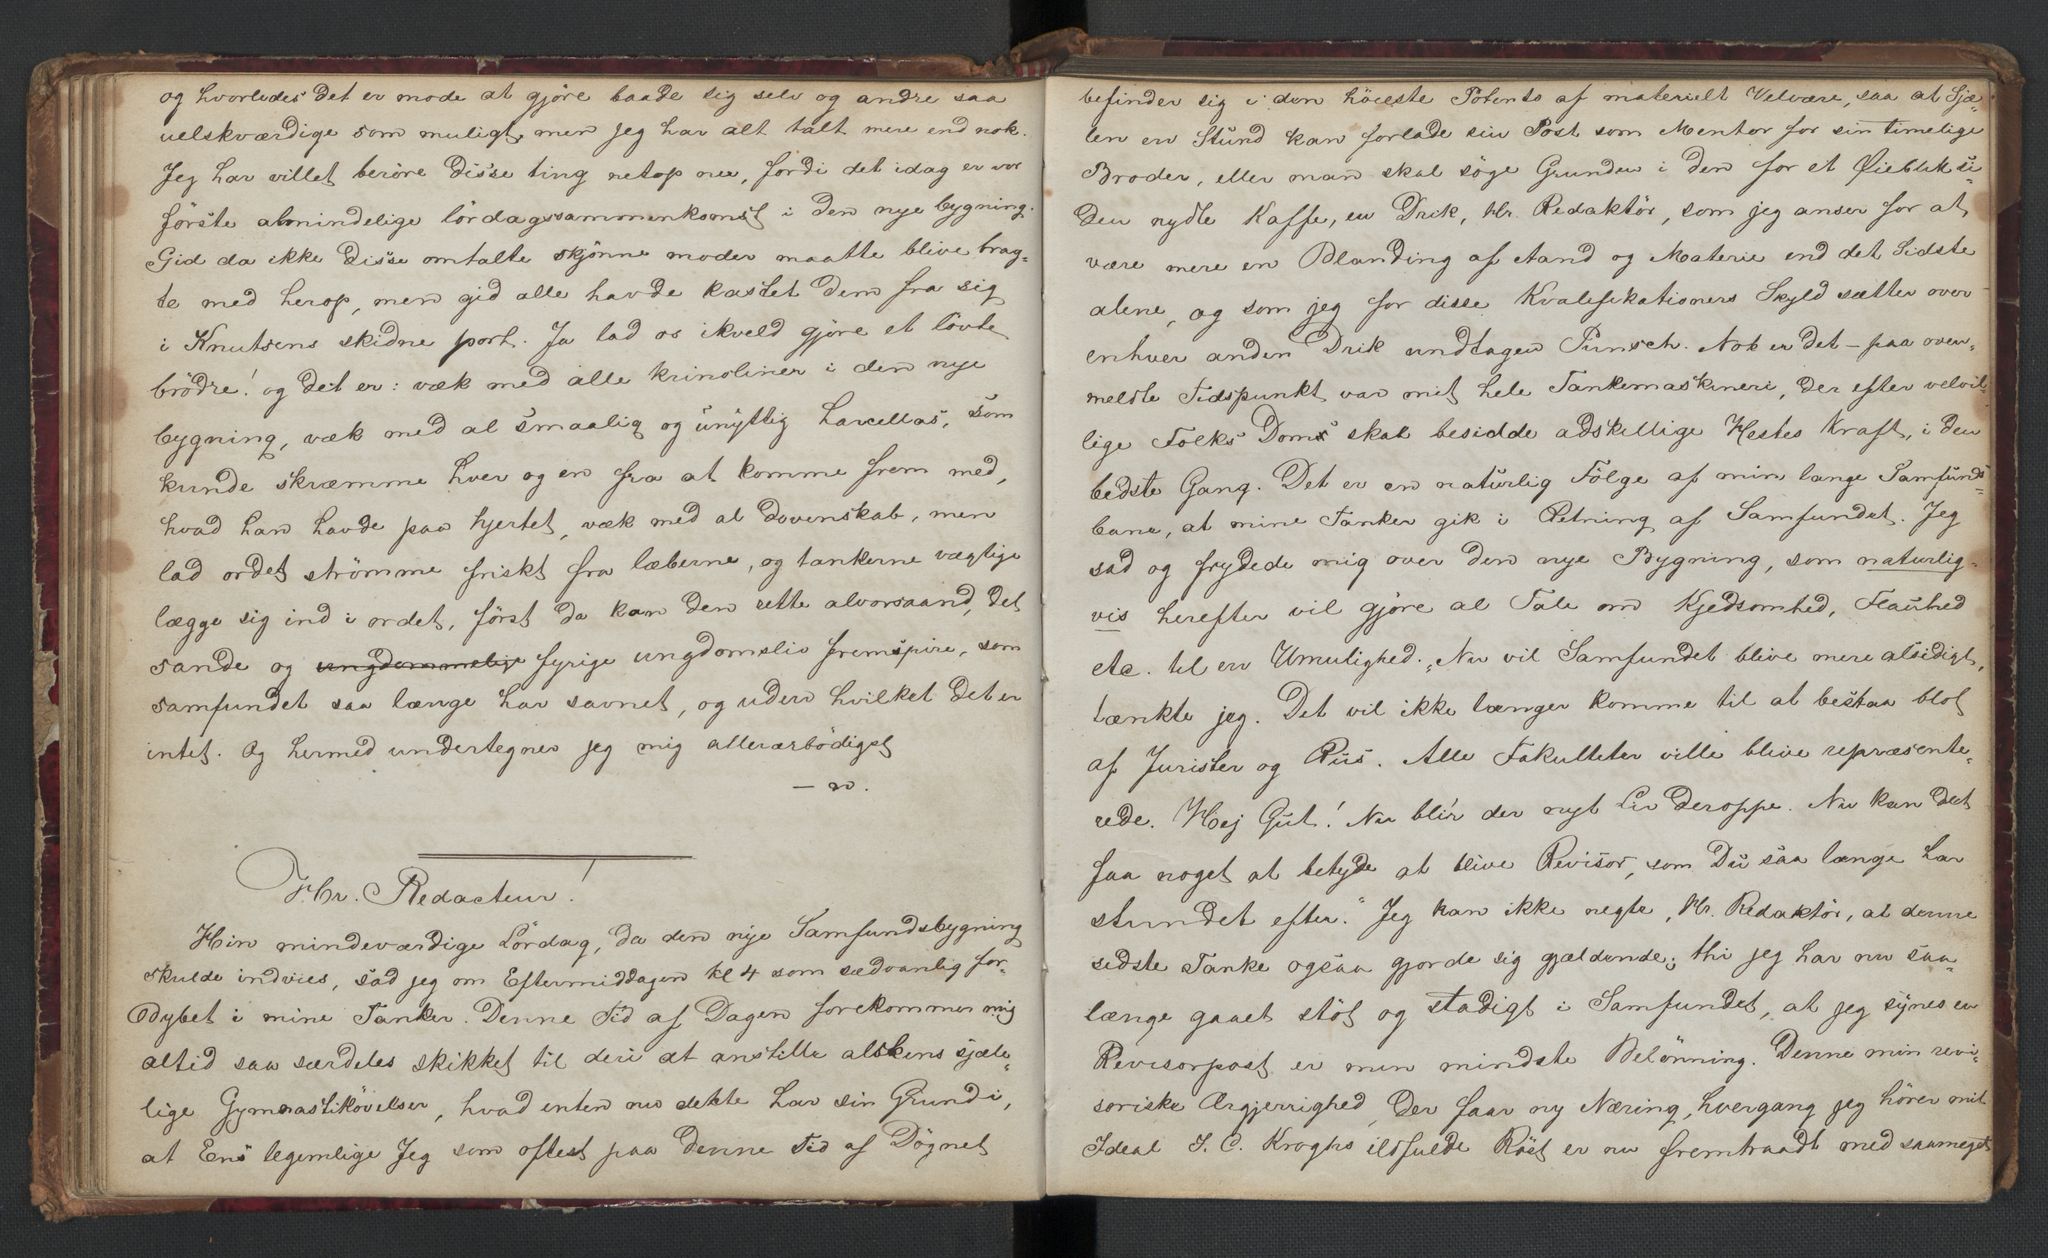 og hvorledes det er mode at gjöre baade sig selv og andre saa
uelskværdige som muligt, men jeg har alt talt mere end nok.
Jeg har villet beröre disse ting netop nu, fordi det idag er vor
förste almindelige lördagssammenkomst i den nye bygning.
Gid da ikke disse omtalte skjönne moder maatte blive brag-
te med herop, men gid alle havde kastet dem fra sig
i Knutsens skidne port. Ja lad os ikveld gjöre et lövte
brödre! og det er: væk med alle krinoliner i den nye
bygning, væk med al smaalig og unyttig harcellas, som
kunde skræmme hver og en fra at komme frem med,
hvad han havde paa hjertet, væk med al dovenskab, men
lad ordet strömme friskt fra læberne, og tankerne vægtige
lægge sig ind i ordet, först da kan den rette alvorsaand, det
sande og ungdommelige fyrige ungdomsliv fremspire, som
samfundet saa længe har savnet, og uden hvilket det er
intet. Og hermed undertegner jeg mig allerærbödigst
— n.
Hr. Redacteur!
Hin mindeværdige Lördag, da den nye Samfundsbygning
skulde indvies, sad jeg om Eftermiddagen kl 4 som sædvanlig for-
dybet i mine Tanker. Denne Tid af Dagen forekommer mig
altid saa særdeles skikket til deri at anstille alskens sjæle-
lige Gymnastikövelser, hvad enten nu dette har sin Grund i,
at Ens legemlige Jeg som oftest paa denne Tid af Dögnet
befinder sig i den höieste Potents af materielt Velvære, saa at Sjæ-
len en Stund kan forlade sin Post som Mentor for sin timelige
Broder, eller man skal söge Grunden i den for et Øieblik si-
den nydte Kaffe, en Drik, Hr. Redaktör, som jeg anser for at
være mere en Blanding af Aand og Materie end det Sidste
alene, og som jeg for disse Kvalifikationers Skyld sætter over
enhver anden Drik undtagen Punsch. Nok er det – paa oven-
meldte Tidspunkt var mit hele Tankemaskineri, der efter velvil-
lige Folks Dom skal besidde adskillige Hestes Kraft, i den
bedste Gang. Det er en naturlig Fölge af min lange Samfunds-
bane, at mine Tanker gik i Retning af Samfundet. Jeg
sad og frydede mig over den nye Bygning, som naturlig-
vis herefter vil gjöre al Tale om Kjedsomhed, Flauhed
etc. til en Umulighed. „Nu vil Samfundet blive mere alsidigt,
tænkte jeg. Det vil ikke længer komme til at bestaa blot
af Jurister og Rus. Alle Fakulteter ville blive repræsente-
rede. Hej Gut! Nu bli'r der nyt Liv deroppe. Nu kan det
faa noget at betyde at blive Revisor, som Du saa længe har
stundet efter." Jeg kan ikke negte, Hr. Redaktör, at denne
sidste Tanke ogsaa gjorde sig gjældende; thi jeg har nu saa-
længe gaaet stöt og stadigt i Samfundet, at jeg synes en
Revisorpost er min mindste Belönning. Denne min revi-
soriske Ærgjerrighed, der faar ny Næring, hvergang jeg hörer mit
Ideal J. C. Kroghs ildfulde Röst er nu fremtraadt med saameget